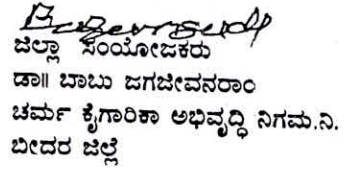 ಜಿಲ್ಲಾ ಸಂಯೋಜಕರು
ಡಾ॥ ಬಾಬು ಜಗಜೀವನರಾಂ
ಚರ್ಮ ಕೈಗಾರಿಕಾ ಅಭಿವೃದ್ಧಿ ನಿಗಮ.ನಿ.
ಬೀದರ ಜಿಲ್ಲೆ